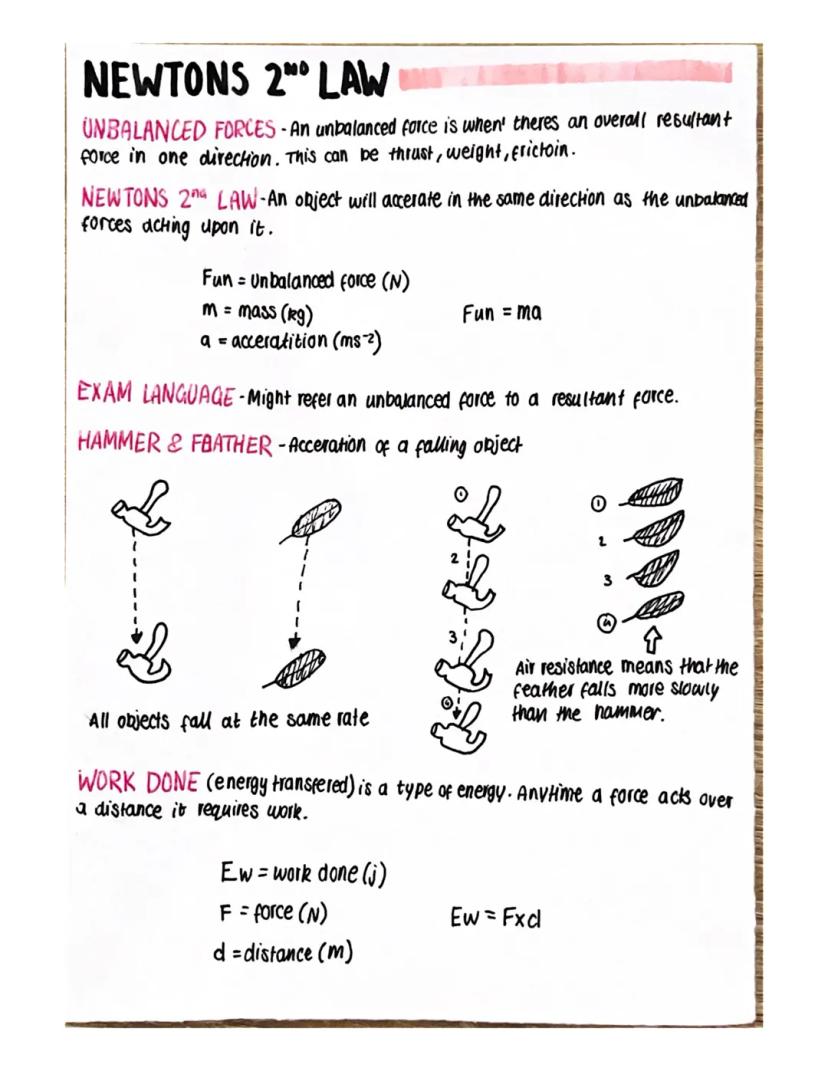 NEWTONS 2ND LAW
UNBALANCED FORCES - An unbalanced force is when theres an overall resultant
force in one direction. This can be thrust, weight, frictoin.
NEWTONS 2nd LAW - An object will accerate in the same direction as the unbalanced
forces acting upon it.
Fun = Unbalanced force (N)
m = mass (kg)
Fun = ma
a = acceratition (ms⁻²)
EXAM LANGUAGE - Might refer an unbalanced force to a resultant force.
HAMMER & FEATHER - Acceration of a falling object
1
2
3
4
1
2
3
4
All objects fall at the same rate
Air resistance means that the
feather falls more slowly
than the hammer.
WORK DONE (energy transfered) is a type of energy. Anytime a force acts over
a distance it requires work.
Ew = work done (j)
F = force (N)
Ew = Fxd
d = distance (m)